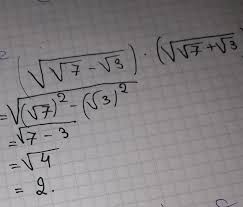 (√(√7 - √3)) · (√(√7 + √3))
= √((√7)² - (√3)²)
= √(7 - 3)
= √4
= 2.